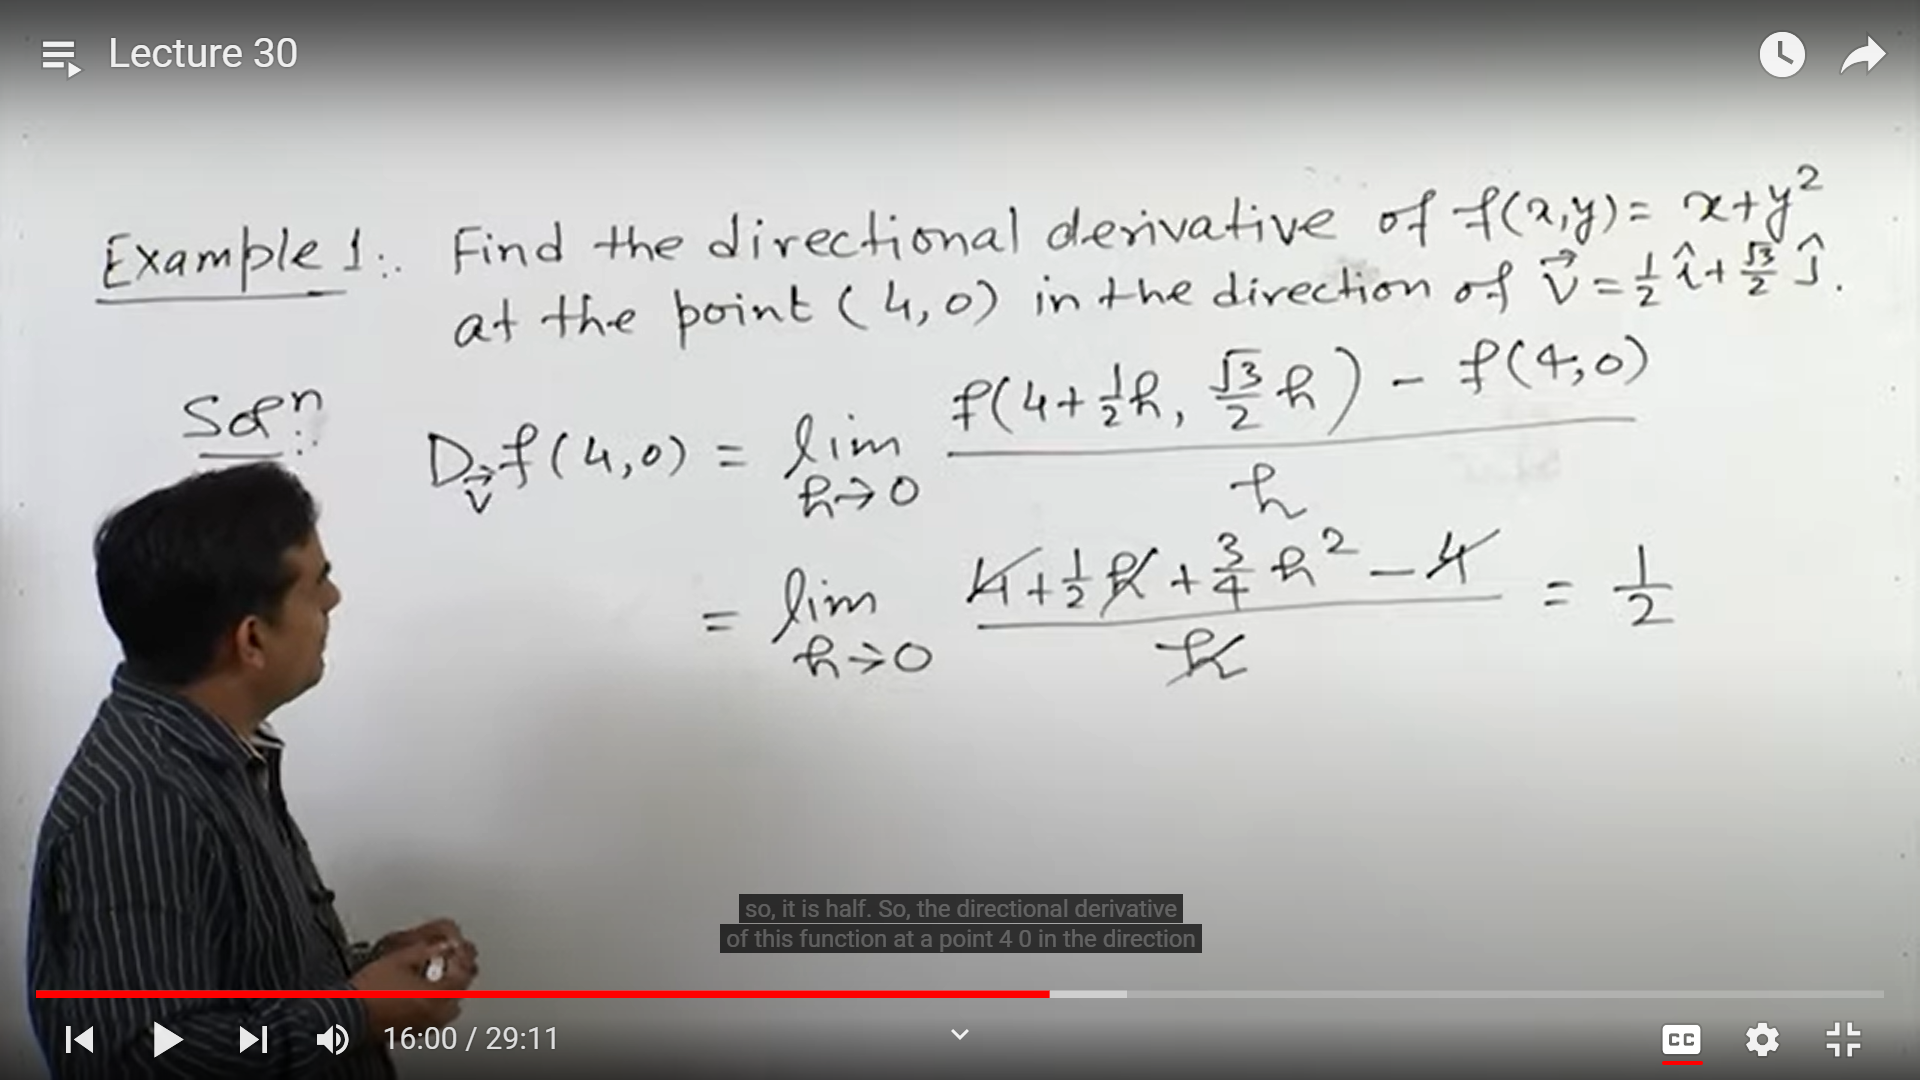 Lecture 30
Example 1:. Find the directional derivative of f(x,y)= x+y²
at the point (4,0) in the direction of v⃗ = 1/2 î + √3/2 ĵ.
Solⁿ:.
D_v⃗ f(4,0) = lim h→0 (f(4+1/2h, √3/2 h) - f(4,0))/h
= lim h→0 (4+1/2h+3/4h²-4)/h = 1/2
so, it is half. So, the directional derivative
of this function at a point 4 0 in the direction
16:00 / 29:11
CC